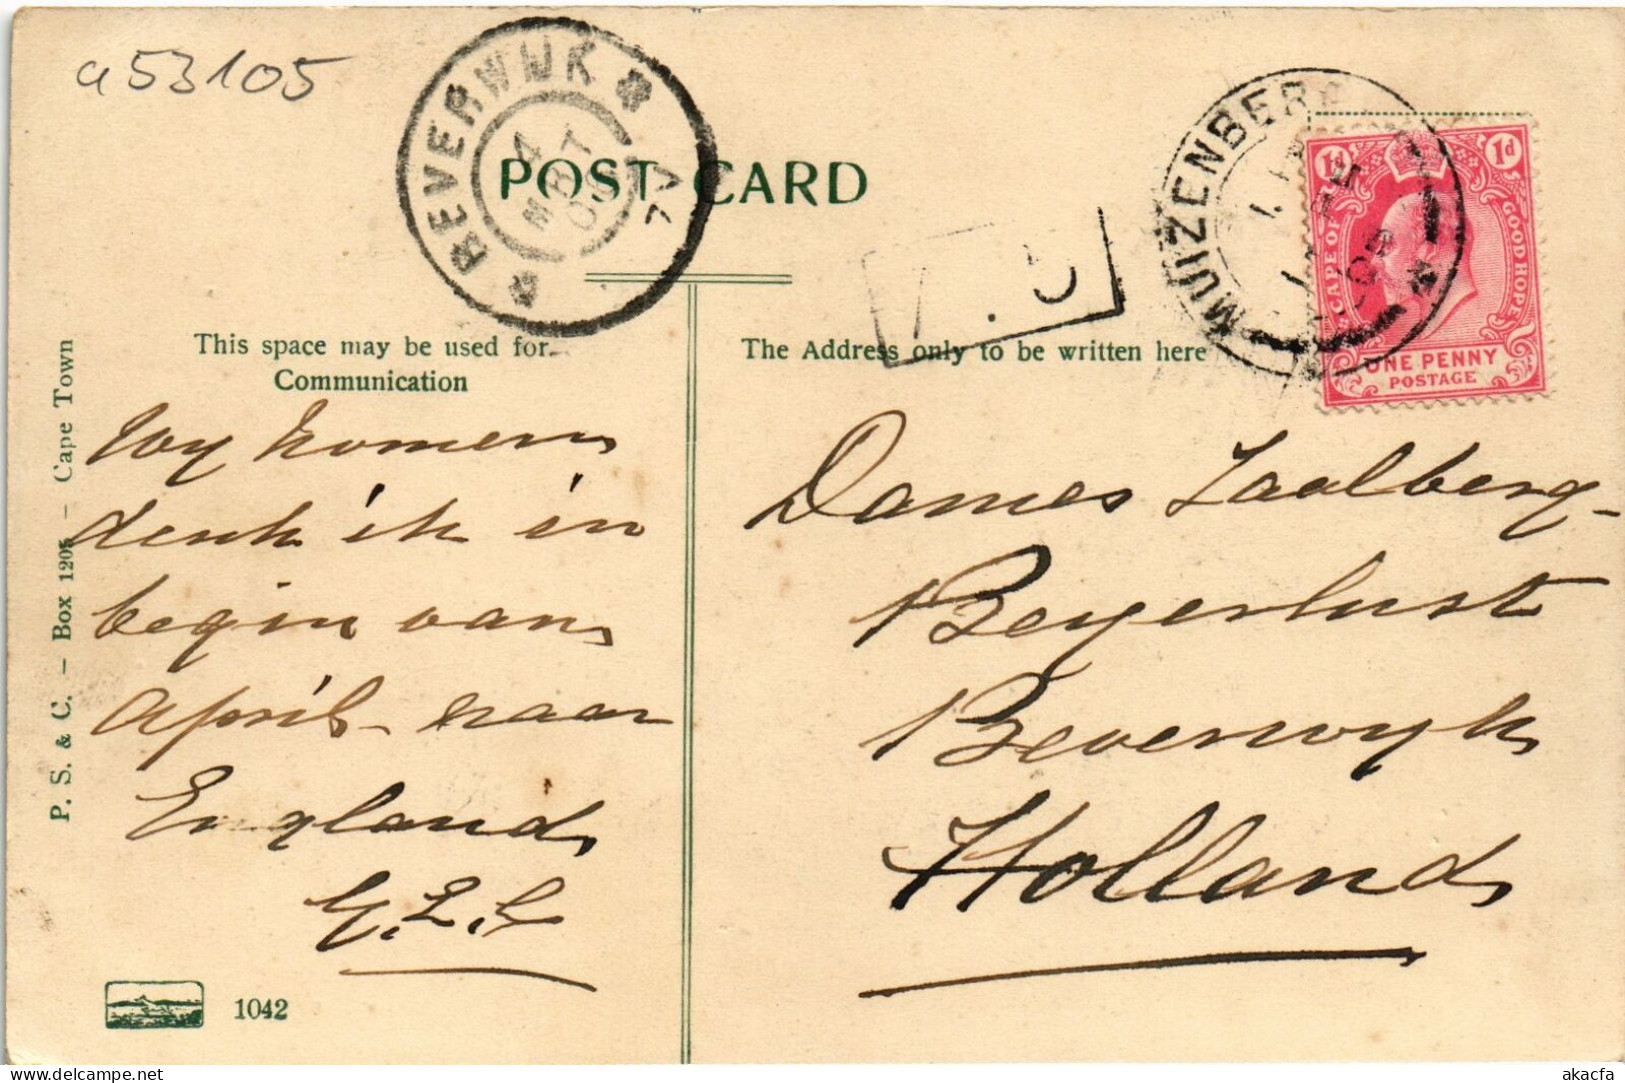 a53105
BEVERWIJK
4
MRT
06
7V
POST CARD
T. 5
MUIZENBERG
1d 1d
CAPE OF GOOD HOPE
ONE PENNY
POSTAGE
This space may be used for
Communication
The Address only to be written here
P. S. & C. – Box 1205 – Cape Town
Wy komen
denk ik in
begin van
April naar
England
Dames Zaalberg
Beyerlust
Beverwyk
Holland
1042
akacfa